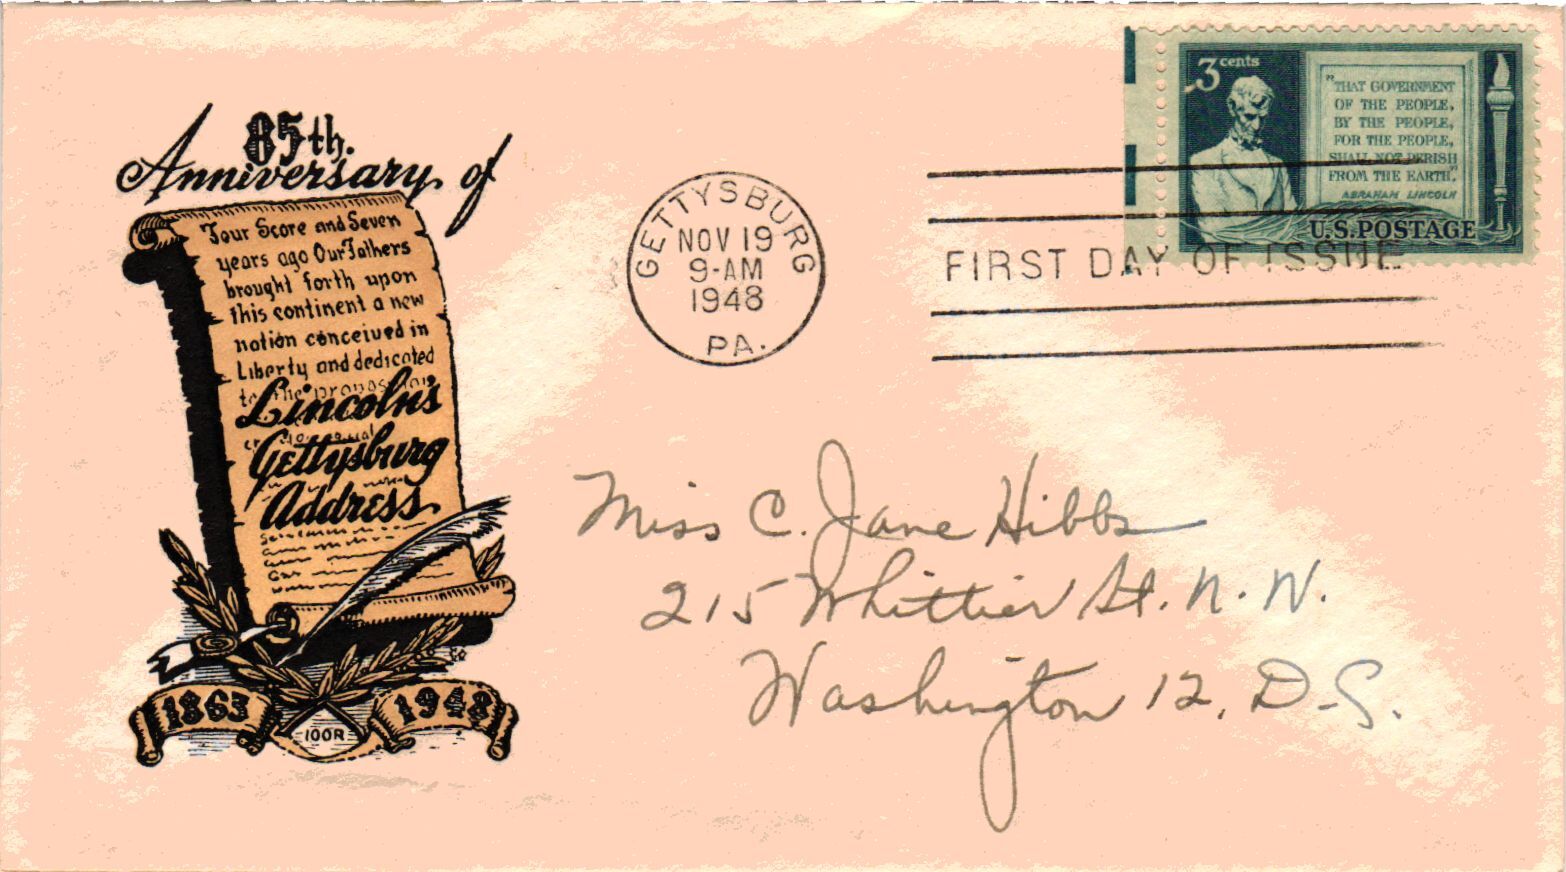 85th.
Anniversary of
Four Score and Seven
years ago Our Fathers
brought forth upon
this continent a new
nation conceived in
Liberty and dedicated
to the proposition
Lincoln's
Gettysburg
Address
1863
1948
100R
GETTYSBURG
NOV 19
9-AM
1948
PA.
3 cents
"THAT GOVERNMENT
OF THE PEOPLE,
BY THE PEOPLE,
FOR THE PEOPLE,
SHALL NOT PERISH
FROM THE EARTH."
ABRAHAM LINCOLN
U.S.POSTAGE
FIRST DAY OF ISSUE
Miss C. Jane Hibbs
215 Whittier St. N.W.
Washington 12, D.C.